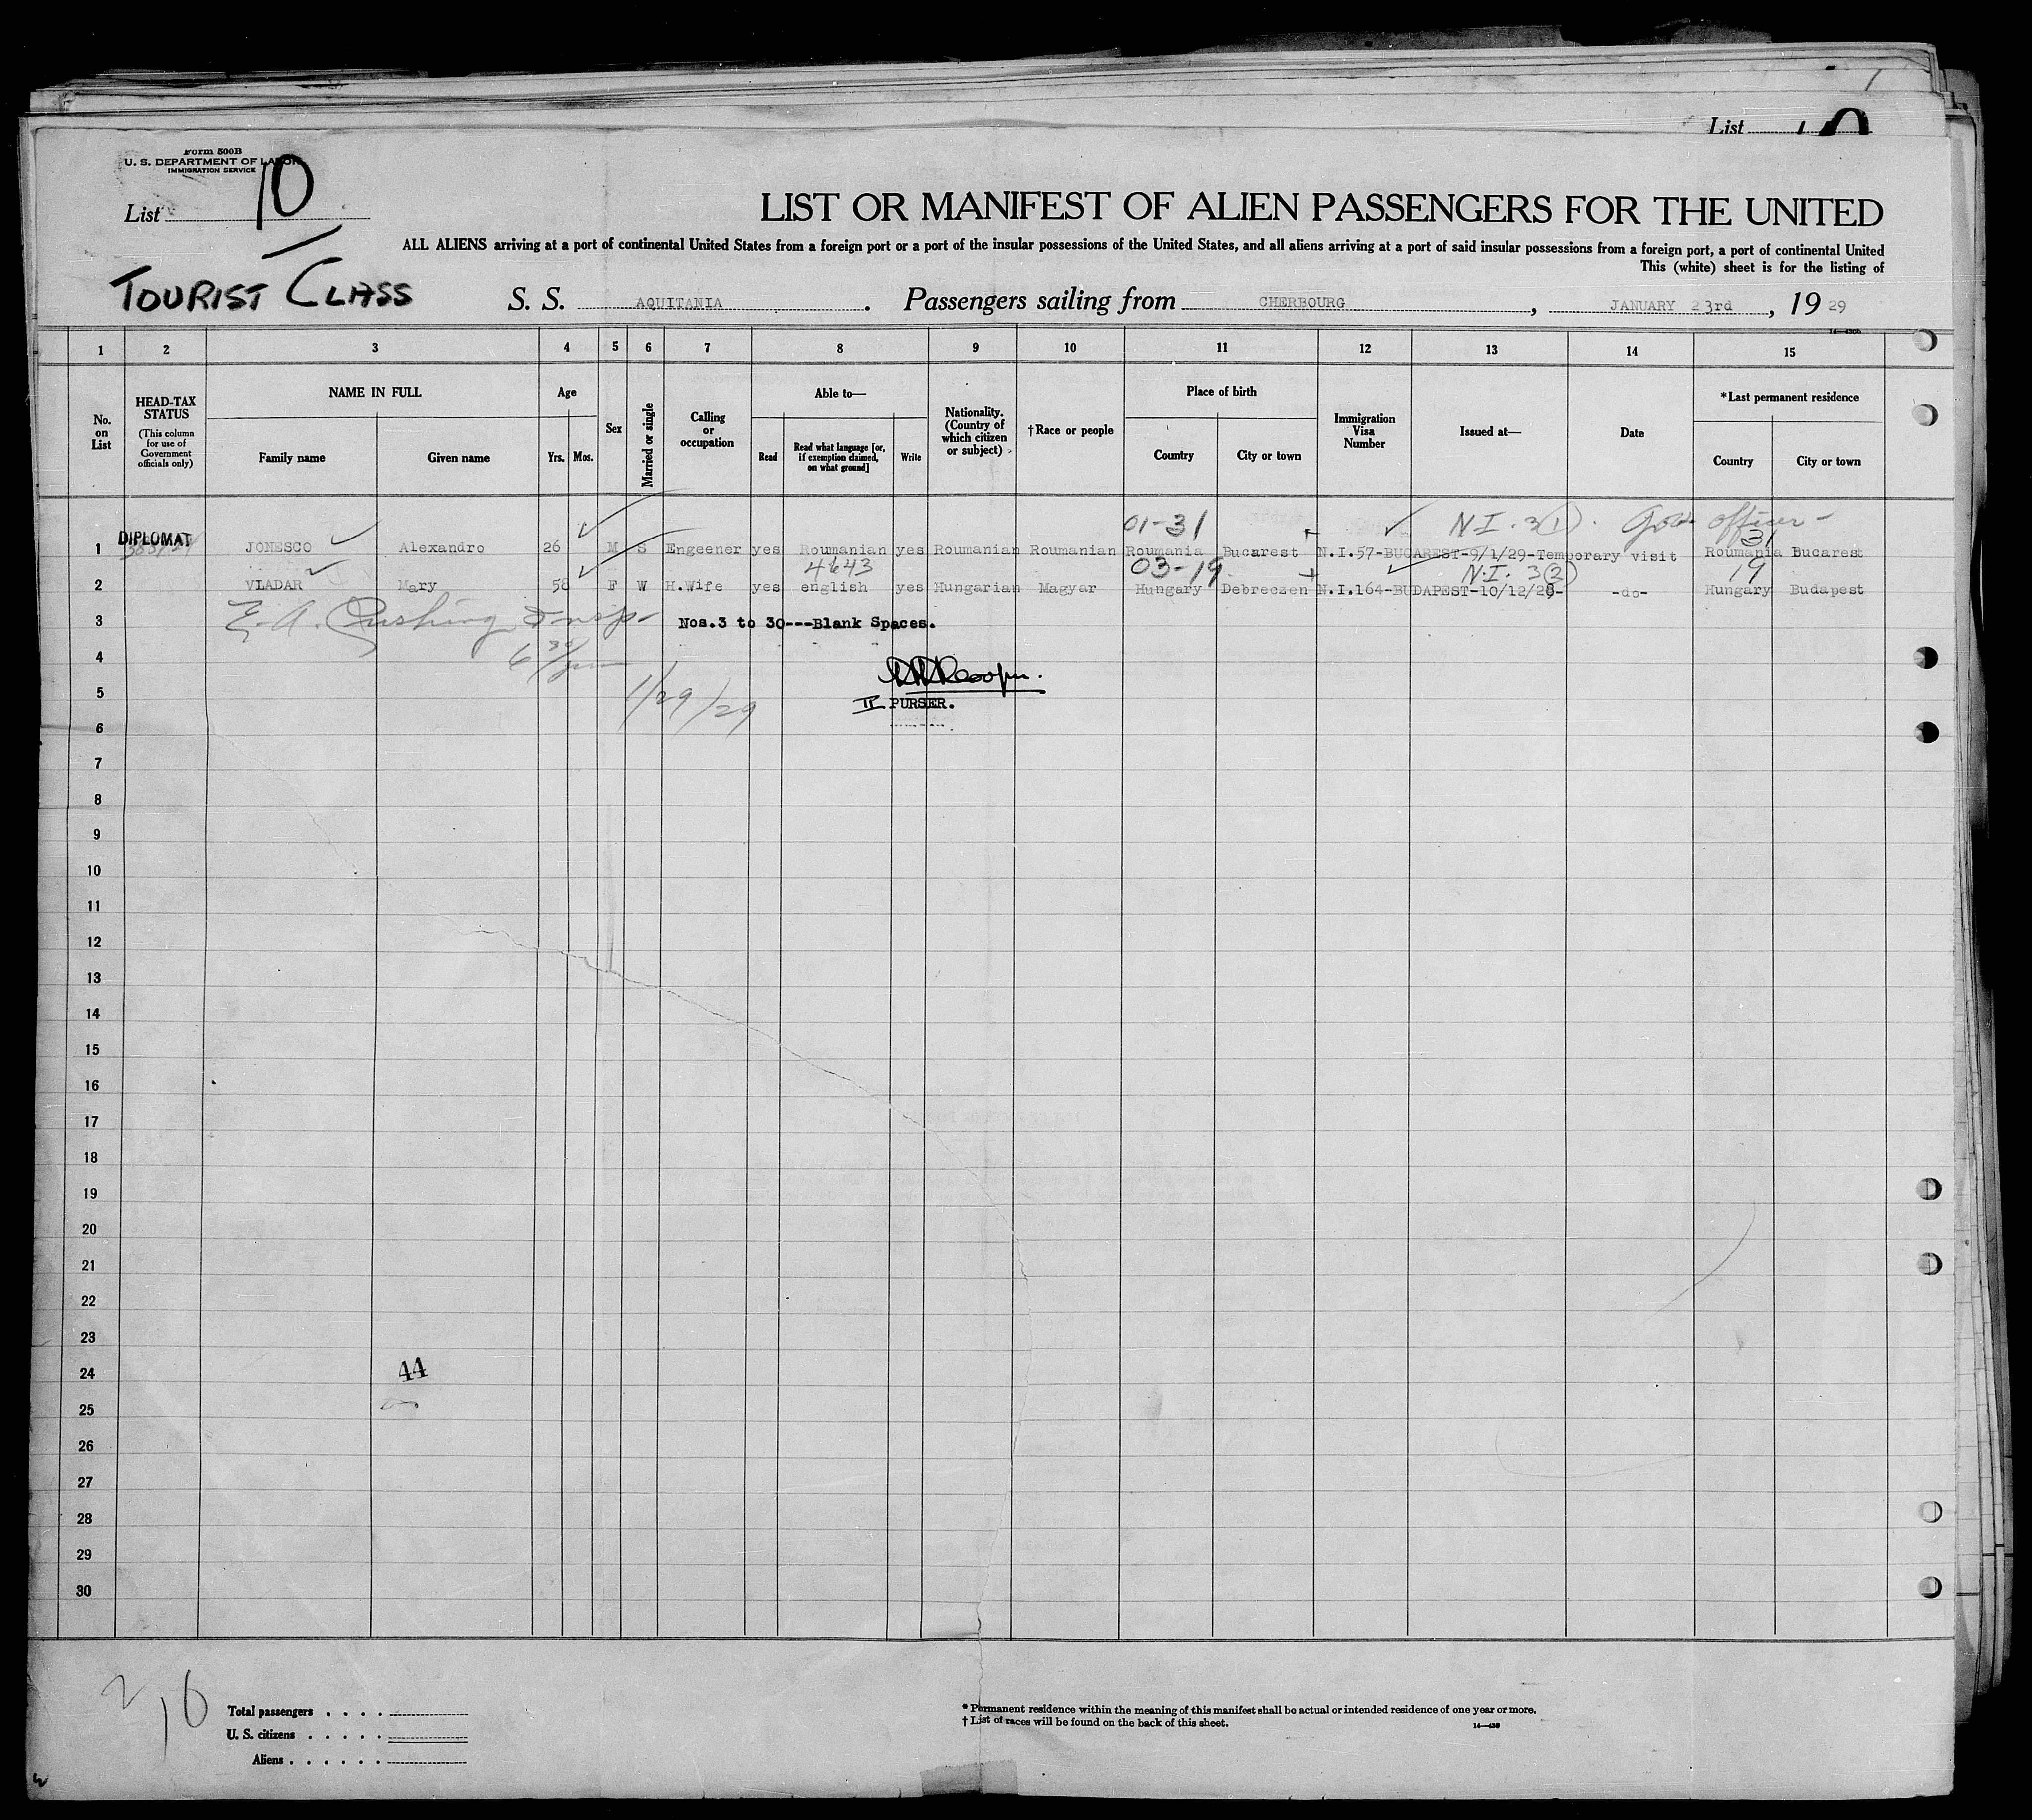 List 10
Form 500B
U. S. DEPARTMENT OF LABOR
IMMIGRATION SERVICE
List 10
LIST OR MANIFEST OF ALIEN PASSENGERS FOR THE UNITED
ALL ALIENS arriving at a port of continental United States from a foreign port or a port of the insular possessions of the United States, and all aliens arriving at a port of said insular possessions from a foreign port, a port of continental United
This (white) sheet is for the listing of
TOURIST CLASS S. S. AQUITANIA . Passengers sailing from CHERBOURG , JANUARY 23rd , 19 29
14—430b
1 2 3 4 5 6 7 8 9 10 11 12 13 14 15
No. on List
HEAD-TAX STATUS (This column for use of Government officials only)
NAME IN FULL
Family name Given name
Age
Yrs. Mos.
Sex
Married or single
Calling or occupation
Able to—
Read Read what language [or, if exemption claimed, on what ground] Write
Nationality. (Country of which citizen or subject)
†Race or people
Place of birth
Country City or town
Immigration Visa Number
Issued at—
Date
*Last permanent residence
Country City or town
01-31 N.I. 3(1). Gov officer -
31
1 DIPLOMAT JONESCO Alexandro 26 M S Engeener yes Roumanian yes Roumanian Roumanian Roumania Bucarest N.I.57-BUCAREST-9/1/29-Temporary visit Roumania Bucarest
4643 03-19 N.I. 3(2) 19
2 VLADAR Mary 58 F W H.Wife yes english yes Hungarian Magyar Hungary Debreczen N.I.164-BUDAPEST-10/12/28- -do- Hungary Budapest
E. A. Cushing Insp
3 Nos.3 to 30---Blank Spaces.
4 6 30/pm
5 1/29/29 II PURSER.
6
7
8
9
10
11
12
13
14
15
16
17
18
19
20
21
22
23
24 44
25
26
27
28
29
30
2/6
Total passengers . . . .
U. S. citizens . . . . .
Aliens . . . . . .
* Permanent residence within the meaning of this manifest shall be actual or intended residence of one year or more.
† List of races will be found on the back of this sheet. 14—430